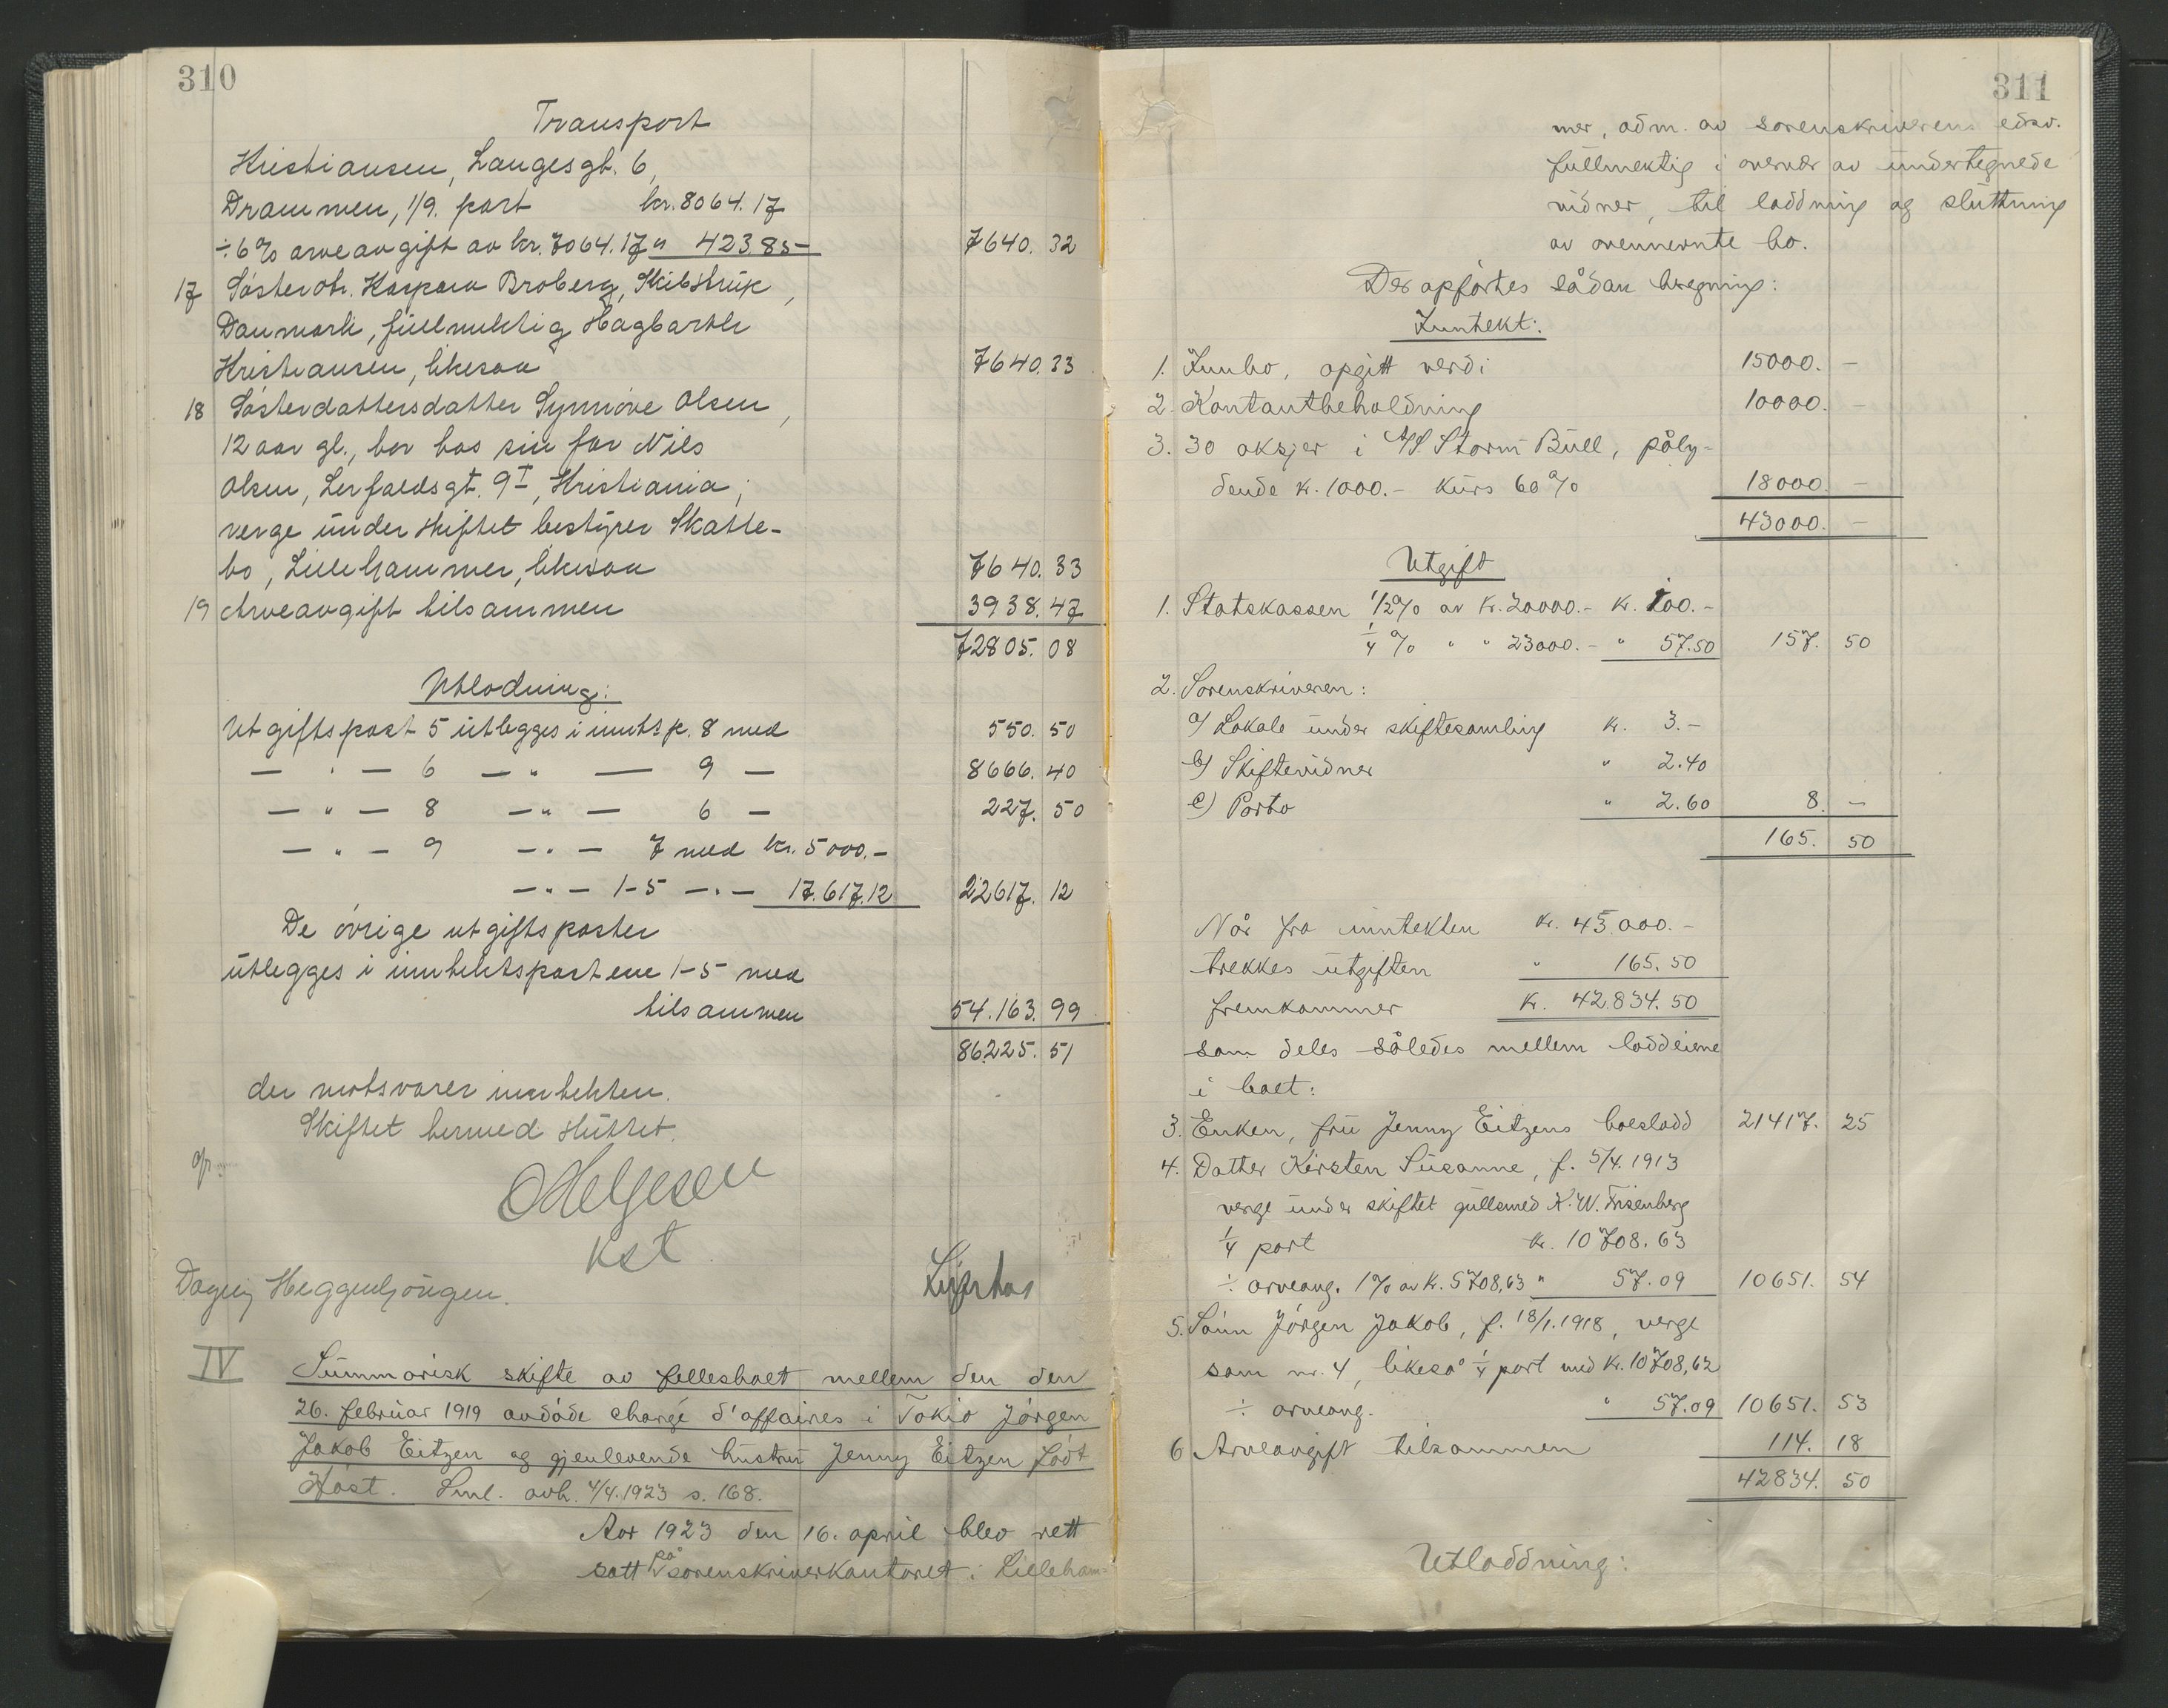 310
Transport
Kristiansen, Langesgt. 6,
Drammen, 1/9. part kr. 8064. 17
÷ 6% arveavgift av kr. 7064.17 " 423.85 7640. 32
17 Søsterdtr. Kaspara Broberg, Skibstrup,
Danmark, fuldmektig Hagbarth
Kristiansen, likesaa 7640. 33
18 Søsterdattersdatter Synnøve Olsen,
12 aar gl., bor hos sin far Nils
Olsen, Lerfaldsgt. 9 I, Kristiania;
verge under skiftet bestyrer Skatte-
bo, Lillehammer, likesaa 7640. 33
19 Arveavgift tilsammen 3938. 47
72805. 08
Utlodning:
Utgiftspost 5 utlegges i inntp. 8 med 550. 50
— " — 6 — " — 9 — 8666. 40
— " — 8 — " — 6 — 227. 50
— " — 9 — " — 7 med kr. 5000.-
— " — 1-5 — " — 17.617.12 22617. 12
De øvrige utgiftsposter
utlegges i inntektspostene 1-5 med
tilsammen 54.163. 99
86225. 51
der motsvarer inntekten.
Skiftet hermed sluttet.
OHelgesen
kst
Dagny Heggenhougen.
IV Summarisk skifte av fellesboet mellem den den
26. februar 1919 avdøde chargé d'affaires i Tokio Jørgen
Jakob Eitzen og gjenlevende hustru Jenny Eitzen født
Høst. Sml. avh. 4/4.1923 s. 168.
Aar 1923 den 16. april blev rett
satt på sorenskriverkontoret i Lilleham-
311
mer, adm. av sorenskriverens edsv.
fullmektig i overvær av undertegnede
vidner, til loddning og sluttning
av ovennevnte bo.
Der opførtes sådan beregning:
Inntekt:
1. Innbo, opgitt verdi 15000. -
2. Kontantbeholdning 10000. -
3. 30 aksjer i A/S. Storm Bull, påly-
dende k. 1000.- kurs 60% 18000. -
43000. -
Utgift
1. Statskassen 1/2% av k. 20000.- k. 100.-
1/4 % " " 23000.- " 57.50 157. 50
2. Sorenskriveren:
a) Lokale under skiftesamling k. 3.-
b) Skiftevidner " 2.40
c) Porto " 2.60 8. -
165. 50
Når fra inntekten k. 43.000.-
trekkes utgiften " 165.50
fremkommer k. 42.834.50
som deles således mellem loddeierne
i boet:
3. Enken, fru Jenny Eitzens boeslodd 21417. 25
4. Datter Kirsten Susanne, f. 5/4.1913
verge under skiftet gullsmed K. W. Frisenberg
1/4 part k. 10708.63
÷ arveavg. 1% av k. 5708,63 " 57.09 10651. 54
5. Sønn Jørgen Jakob, f. 18/1.1918, verge
som nr. 4, likeså 1/4 part med k. 10708,62
÷ arveavg. " 57.09 10651. 53
6 Arveavgift tilsammen 114. 18
42834. 50
Utloddning: